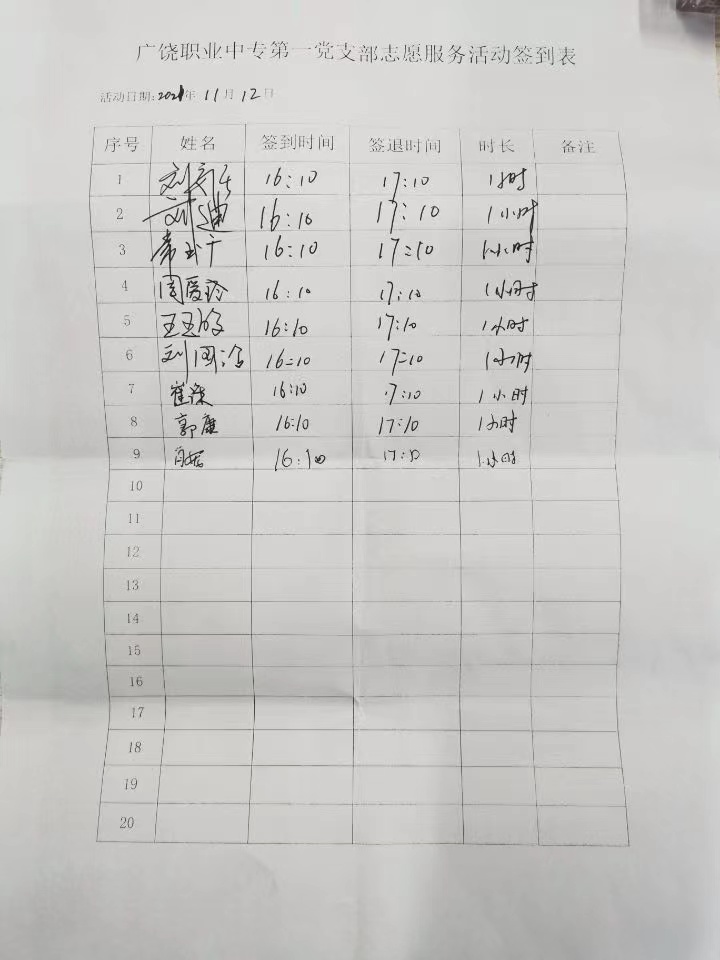 广饶职业中专第一党支部志愿服务活动签到表
活动日期:2021年 11月 12日
序号 姓名 签到时间 签退时间 时长 备注
1 16:10 17:10 1小时
2 刘迪 16:10 17:10 1小时
3 16:10 17:10 1小时
4 周爱玲 16:10 17:10 1小时
5 16:10 17:10 1小时
6 16:10 17:10 1小时
7 16:10 17:10 1小时
8 郭康 16:10 17:10 1小时
9 16:10 17:10 1小时
10
11
12
13
14
15
16
17
18
19
20